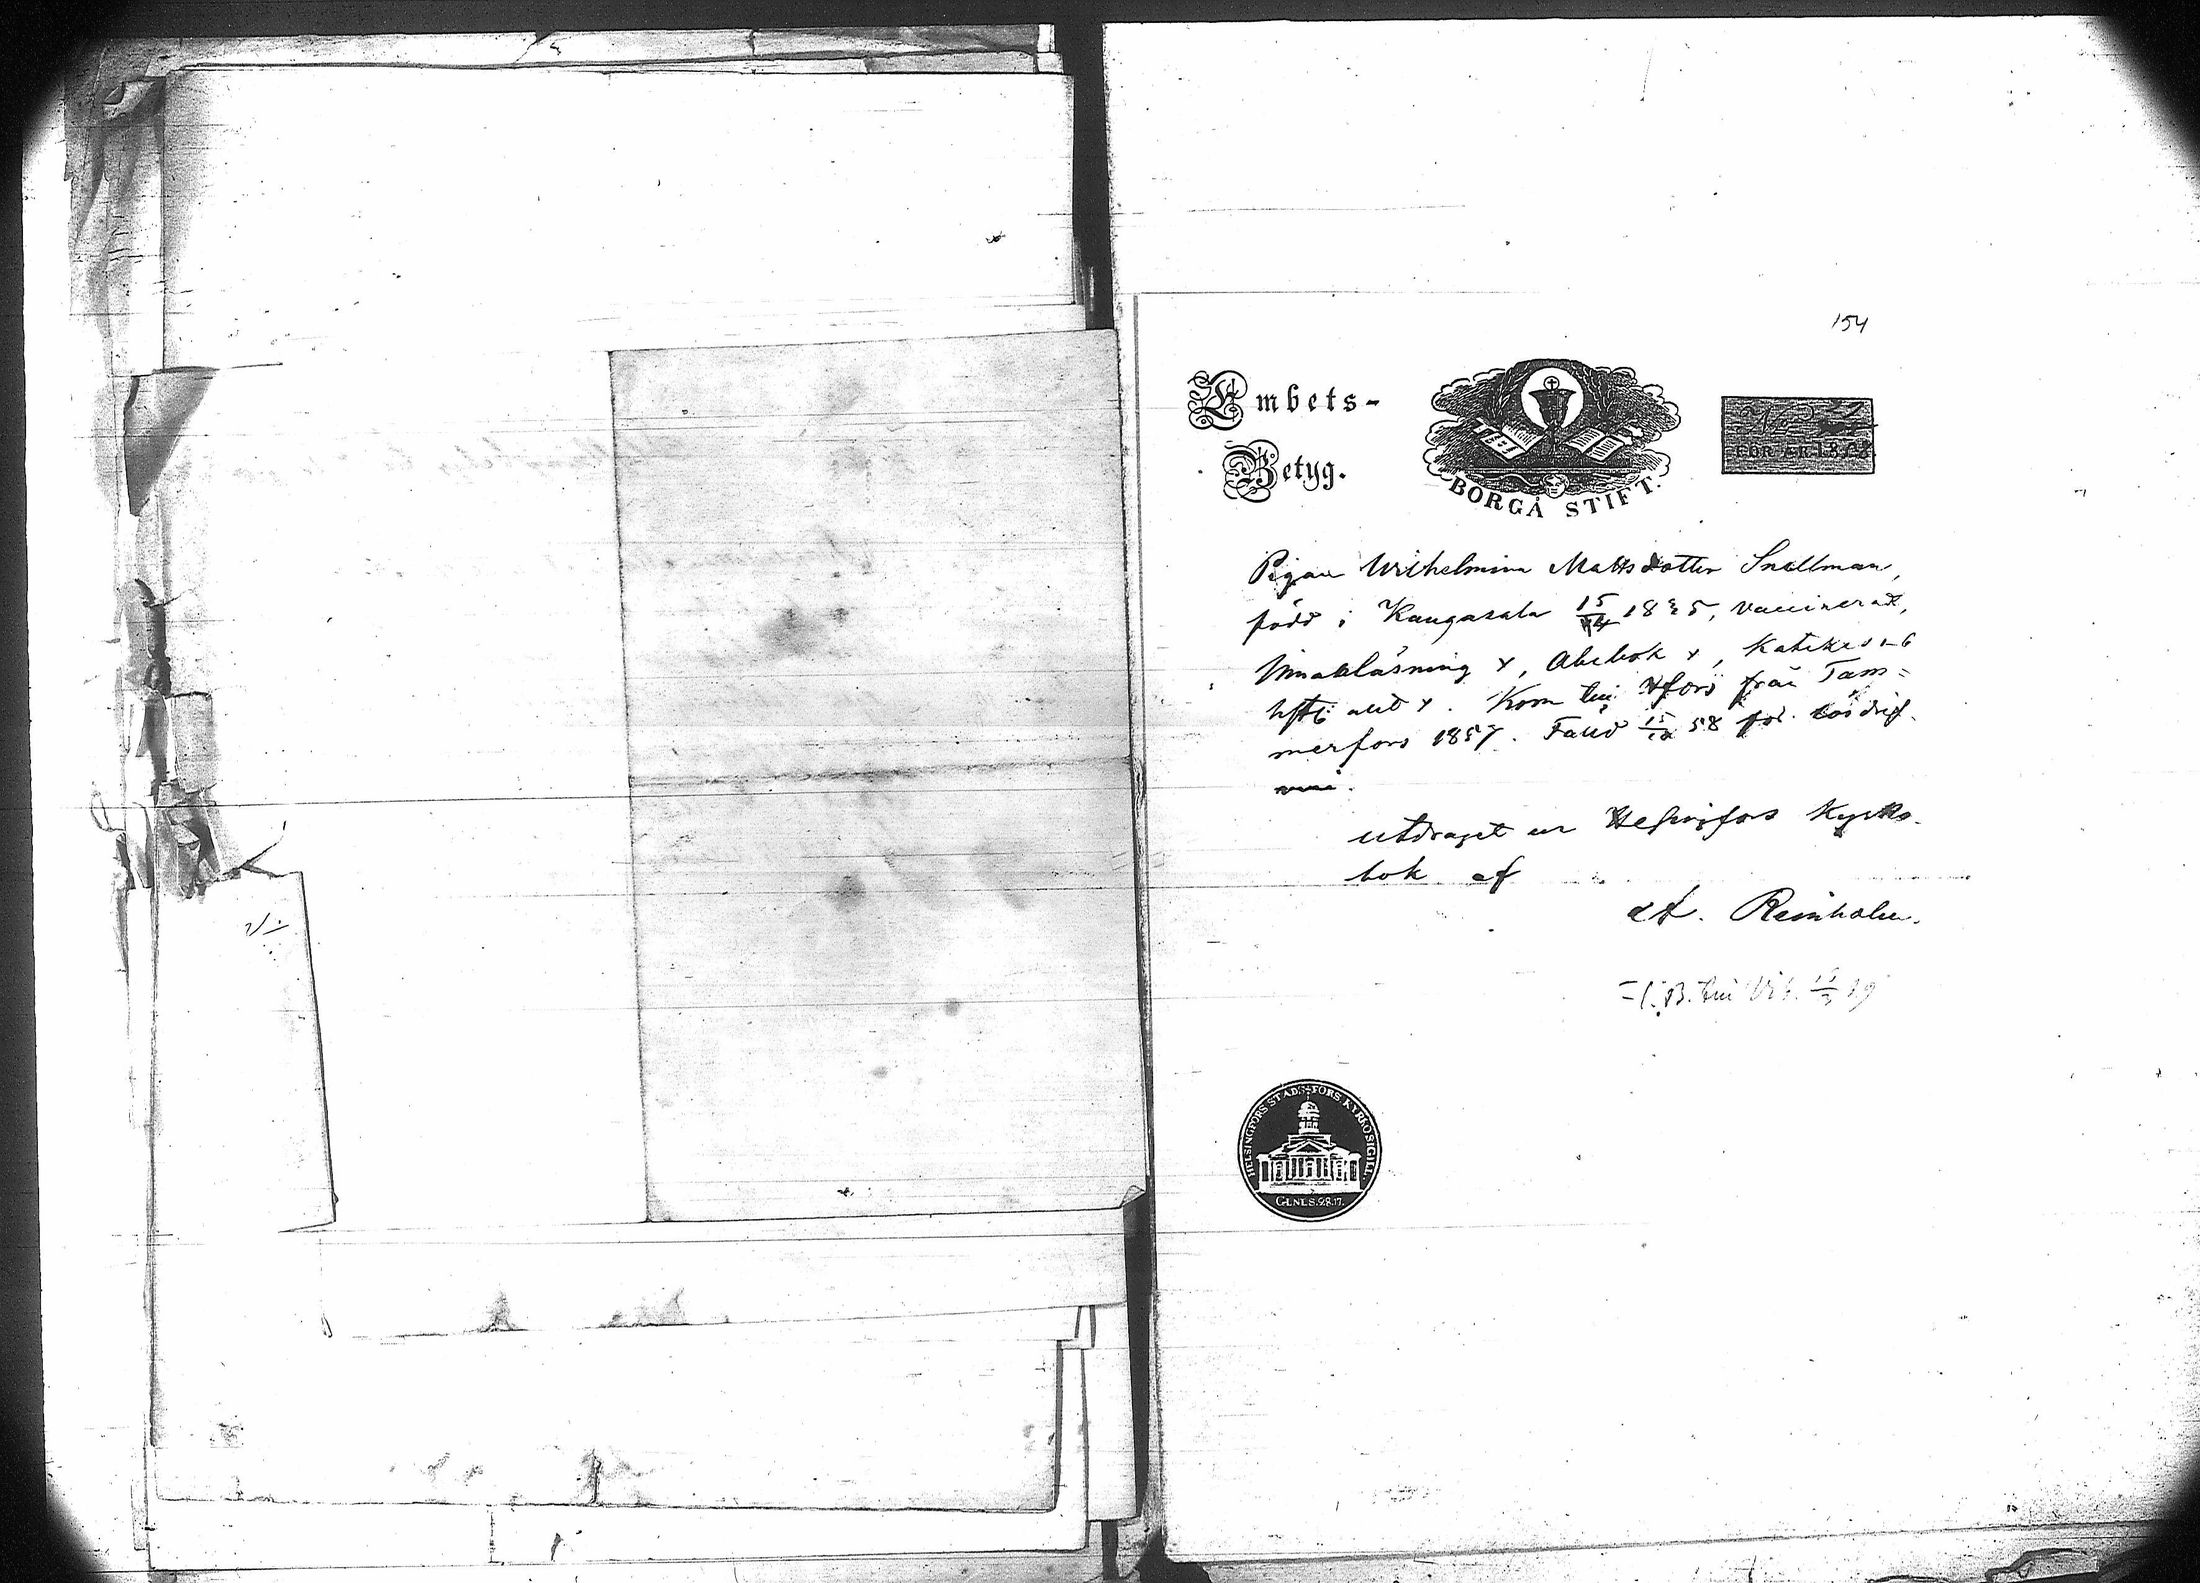 154
Embets-
Betyg.
BORGÅ STIFT.
FÖR ÅR 1858.
Pigan Wilhelmina Mattsdotter Snellman,
född i Kangasala 15/4 1835, vaccinerad,
Innanläsning x, Abcbok x, Katekes
x. Kom till Hfors från Tam-
merfors 1857. Fälld 15/10 58 för lösdrif-
veri.
utdraget ur Helsingfors Kyrko-
bok af
A. Reinholm.
HELSINGFORS STADSFÖRS. KYRKOSIGILL.
GENES. 28. 17.